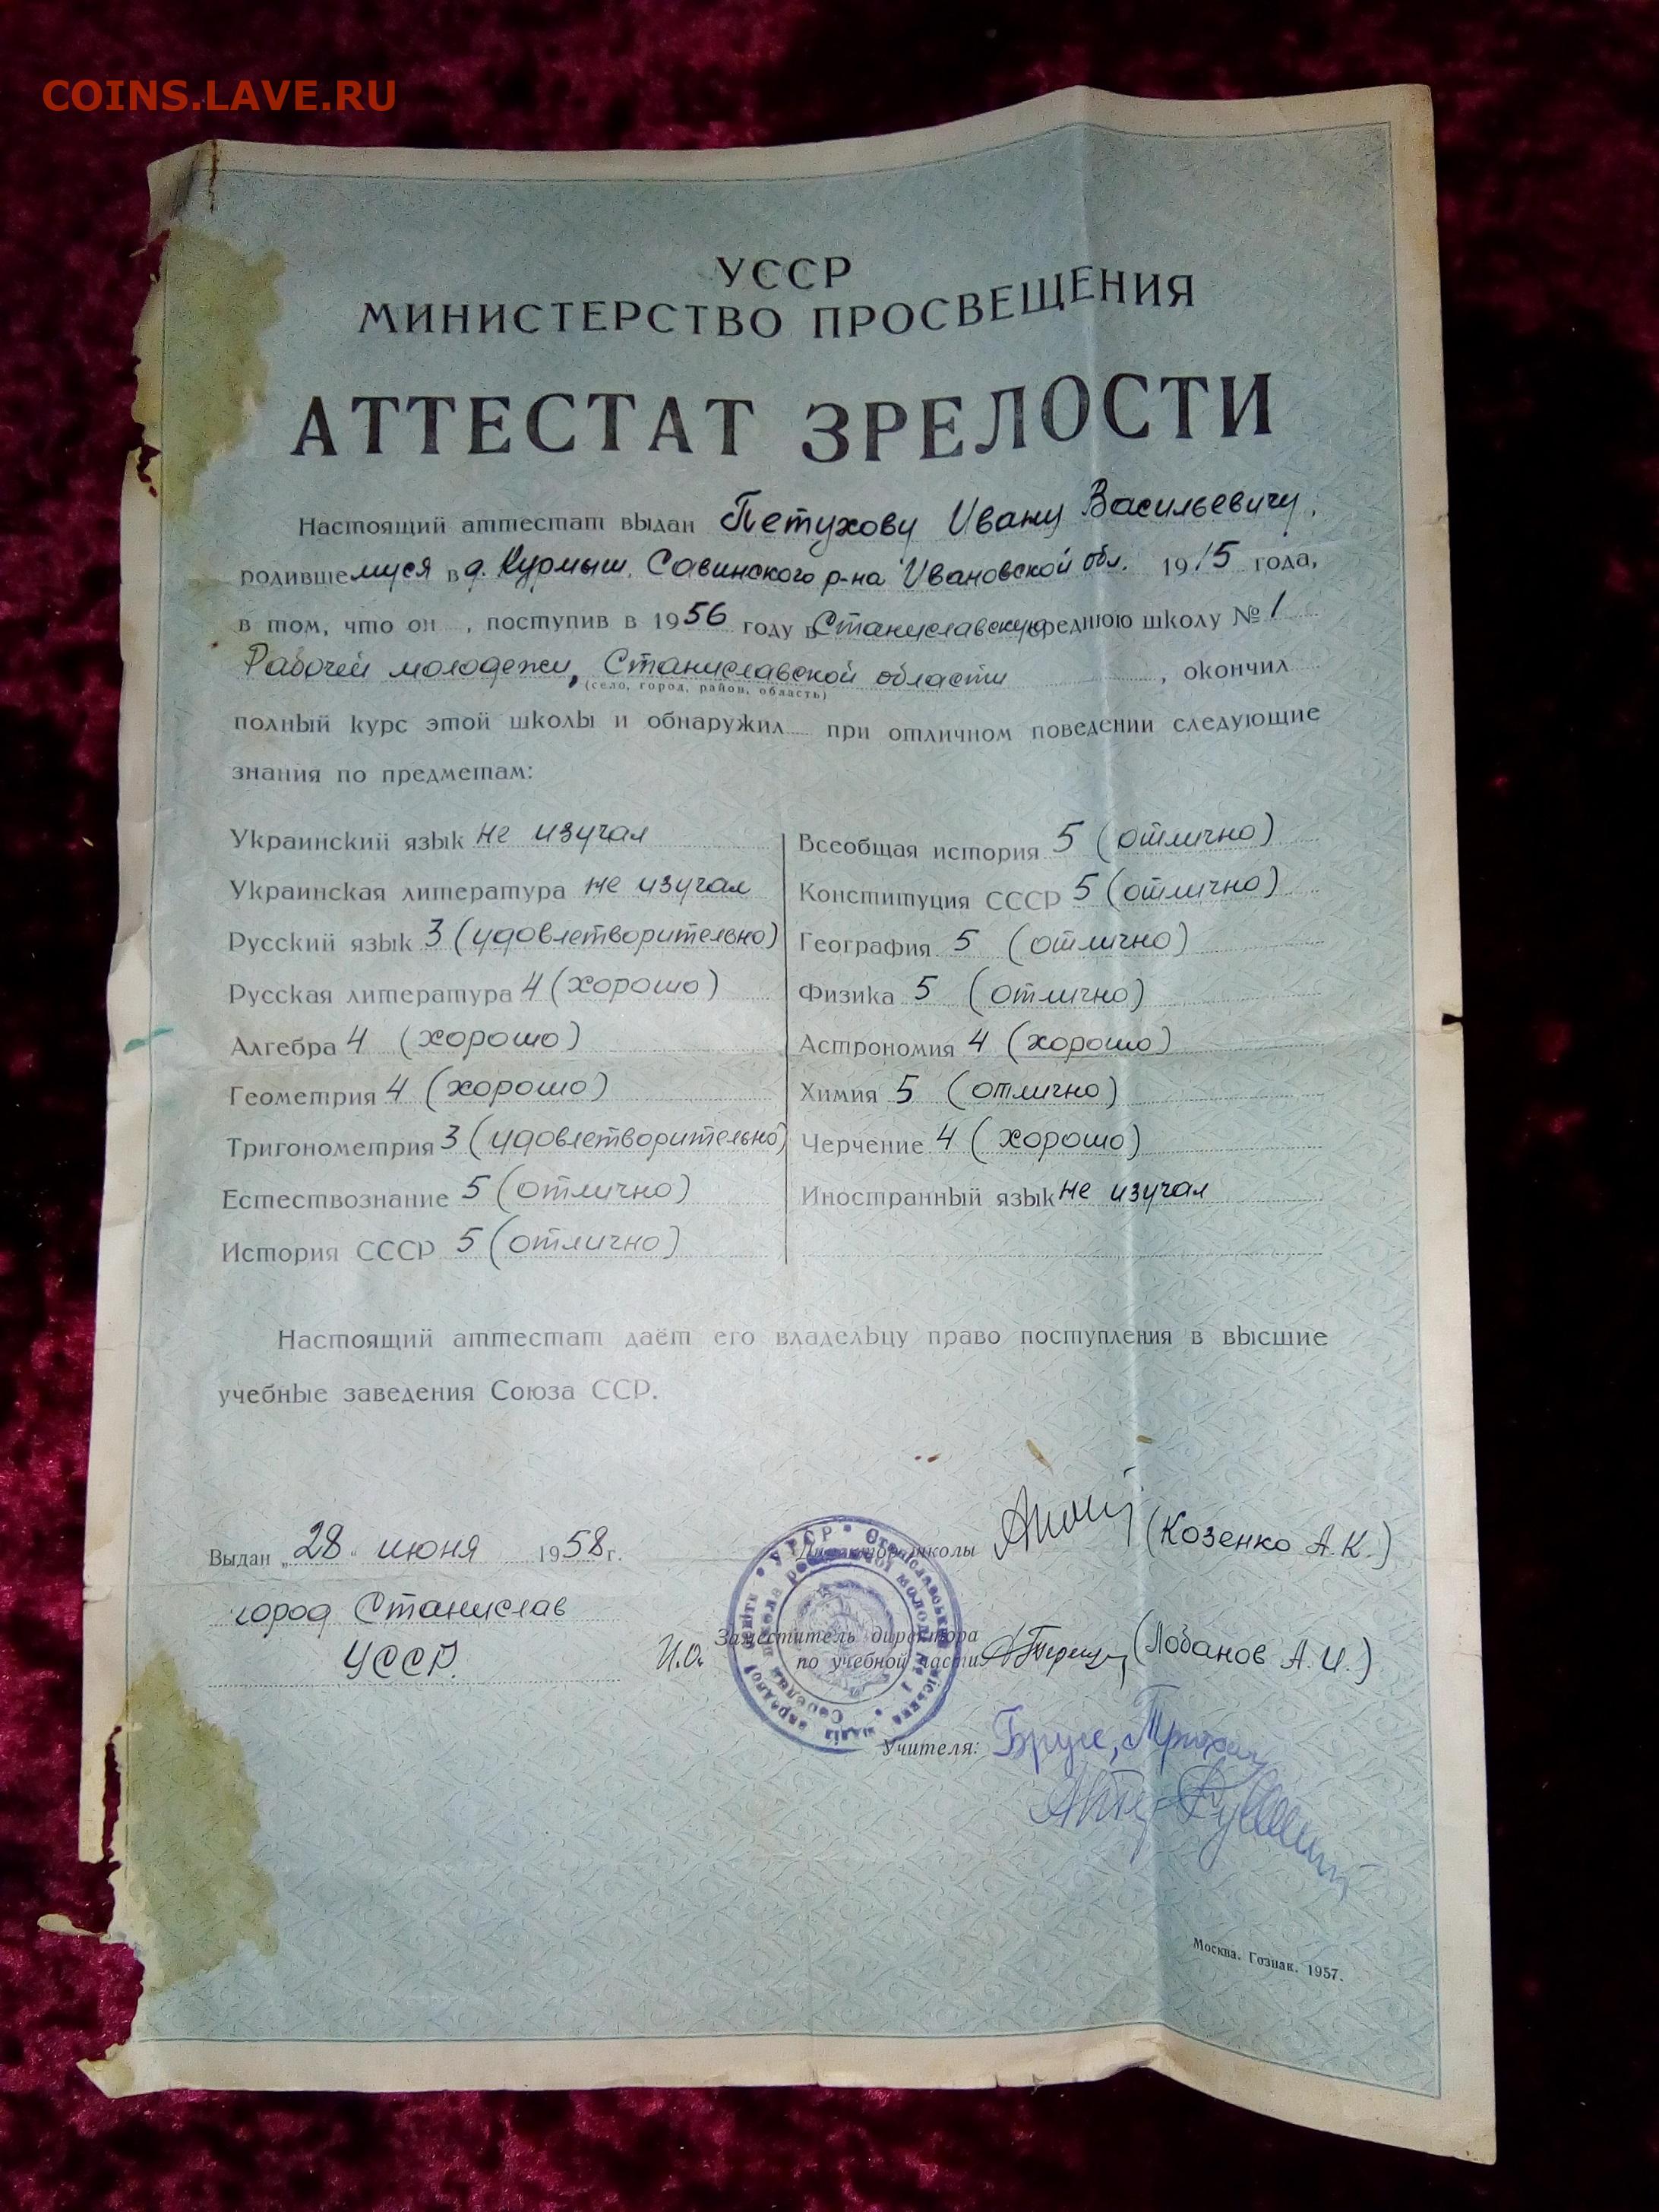 COINS.LAVE.RU
УССР
МИНИСТЕРСТВО ПРОСВЕЩЕНИЯ
АТТЕСТАТ ЗРЕЛОСТИ
Настоящий аттестат выдан Петухову Ивану Васильевичу,
родившемуся в д. Курмыш, Савинского р-на Ивановской обл. 1915 года,
в том, что он , поступив в 1956 году в Станиславскую среднюю школу № 1
Рабочей молодежи, Станиславской области , окончил
(село, город, район, область)
полный курс этой школы и обнаружил при отличном поведении следующие
знания по предметам:
Украинский язык не изучал
Украинская литература не изучал
Русский язык 3 (удовлетворительно)
Русская литература 4 (хорошо)
Алгебра 4 (хорошо)
Геометрия 4 (хорошо)
Тригонометрия 3 (удовлетворительно)
Естествознание 5 (отлично)
История СССР 5 (отлично)
Всеобщая история 5 (отлично)
Конституция СССР 5 (отлично)
География 5 (отлично)
Физика 5 (отлично)
Астрономия 4 (хорошо)
Химия 5 (отлично)
Черчение 4 (хорошо)
Иностранный язык не изучал
Настоящий аттестат даёт его владельцу право поступления в высшие
учебные заведения Союза ССР.
Выдан „28" июня 1958 г.
город Станислав
УССР.
Директор школы (Козенко А.К.)
И.О. Заместитель директора
по учебной части (Лобанов А.И.)
Учителя:
Москва. Гознак. 1957.